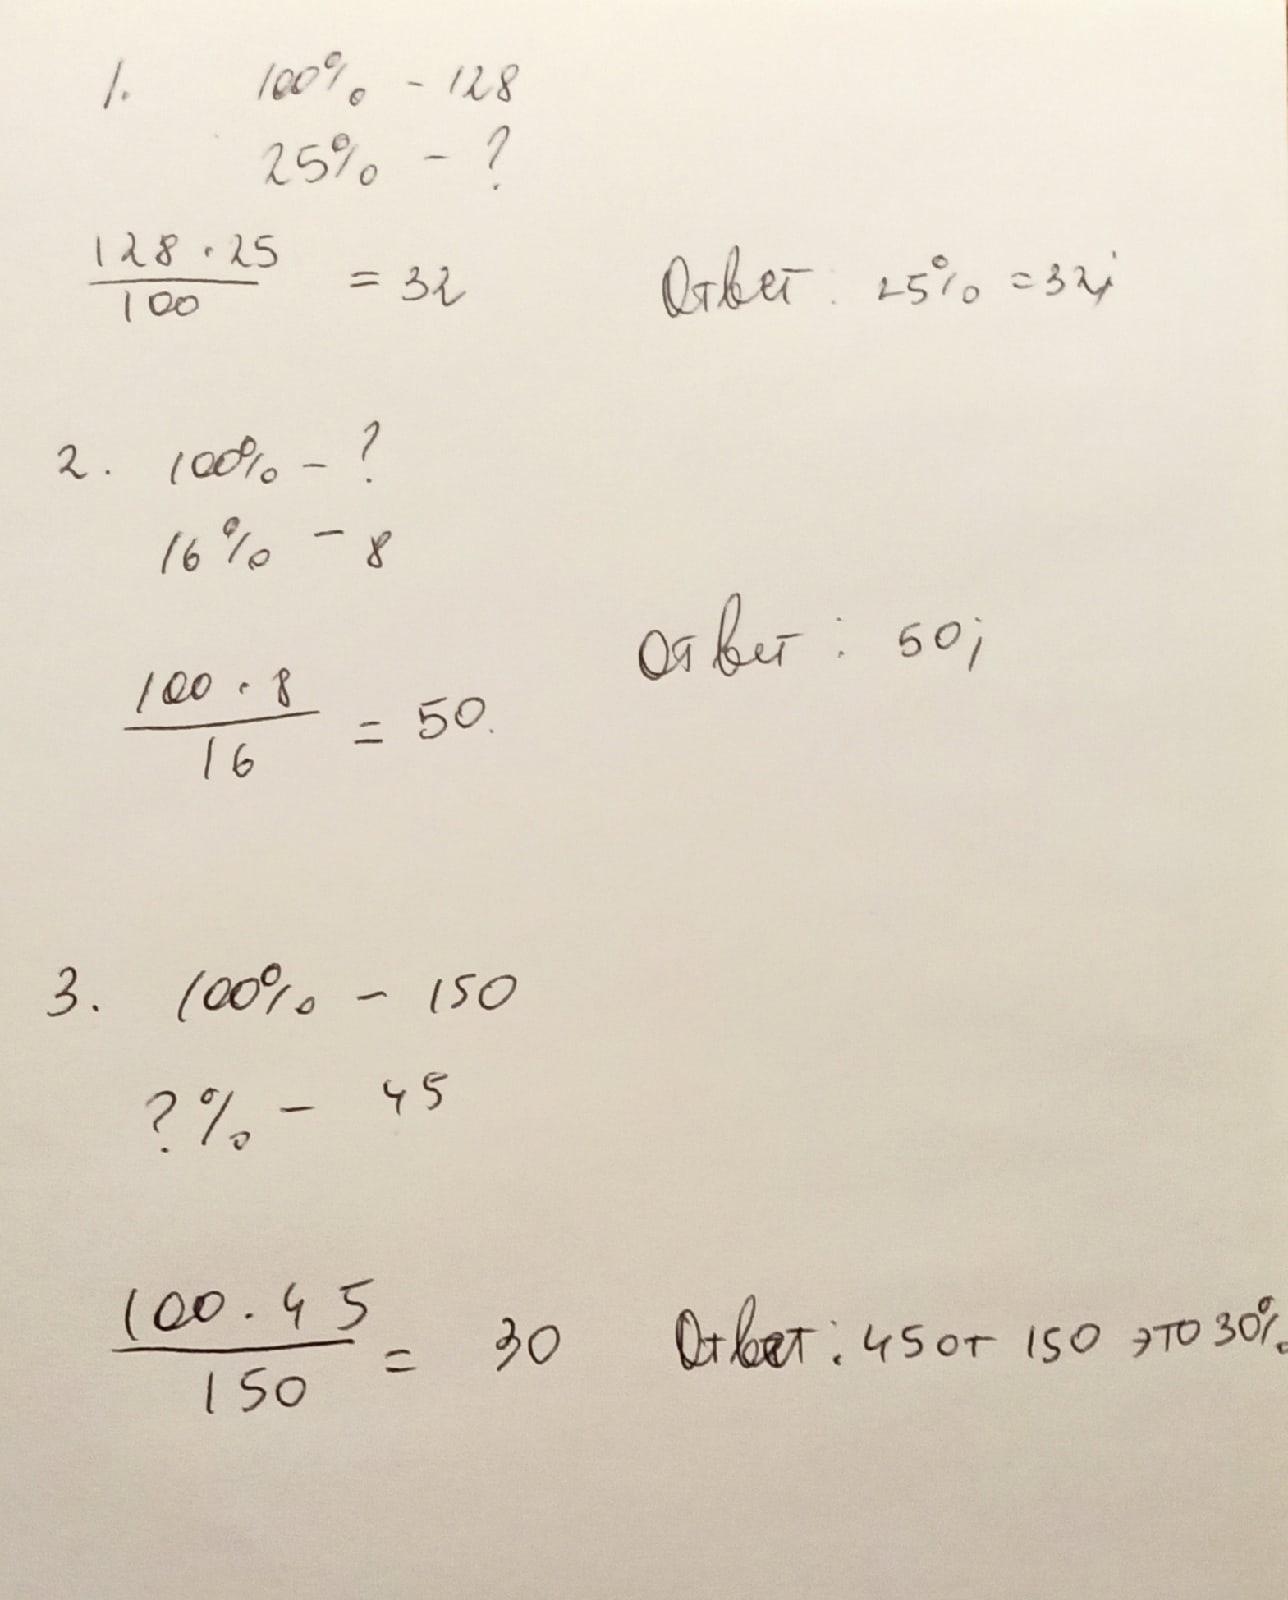 1. 100% - 128
25% - ?
128 · 25
100
= 32
Ответ: 25% = 32;
2. 100% - ?
16% - 8
100 · 8
16
= 50.
Ответ: 50;
3. 100% - 150
?% - 45
100 · 45
150
= 30
Ответ: 45 от 150 это 30%